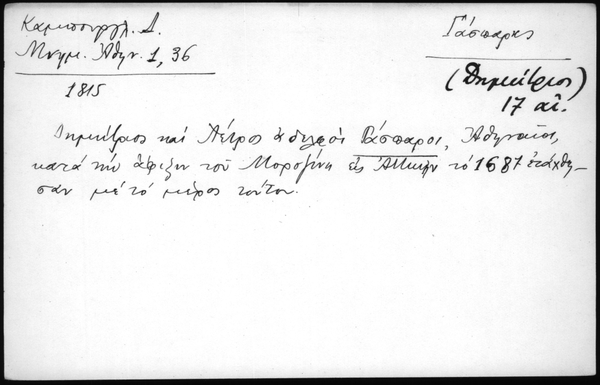 Καμπουργλ. Δ.
Μνημ. Ἀθην. 1, 36
1815
Γάσπαρης
(Δημήτριος)
17 αἰ.
Δημήτριος καὶ Πέτρος ἀδελφοὶ Γάσπαροι, Ἀθηναῖοι,
κατὰ τὴν ἄφιξιν τοῦ Μοροζίνη εἰς Ἀττικὴν τὸ 1687 ἐτάχθη-
σαν μὲ τὸ μέρος τούτου.